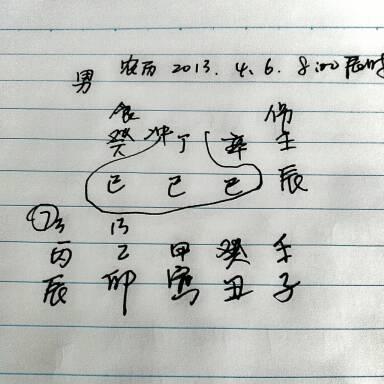 男 农历 2013. 4. 6. 8:00 辰时
食 伤
癸 冲 丁 辛 壬
巳 巳 巳 辰
13
丙 乙 甲 癸 壬
辰 卯 寅 丑 子